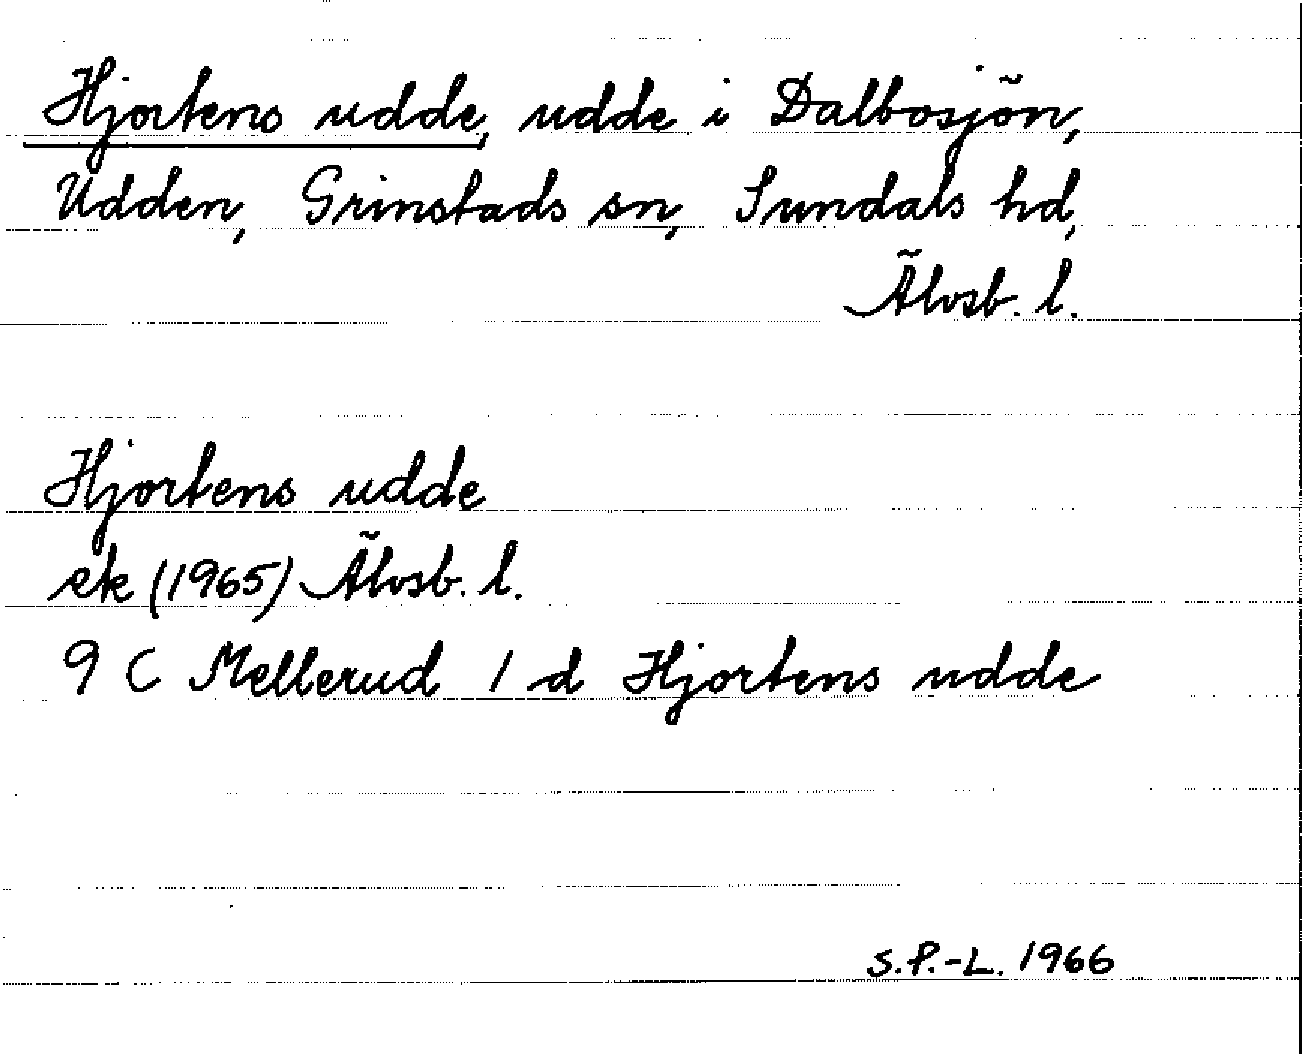 Hjortens udde, udde i Dalbosjön,
Udden, Grinstads sn, Sundals hd,
Älvsb. l.
Hjortens udde
ek (1965) Älvsb. l.
9 C Mellerud 1 d Hjortens udde
S.P.-L. 1966